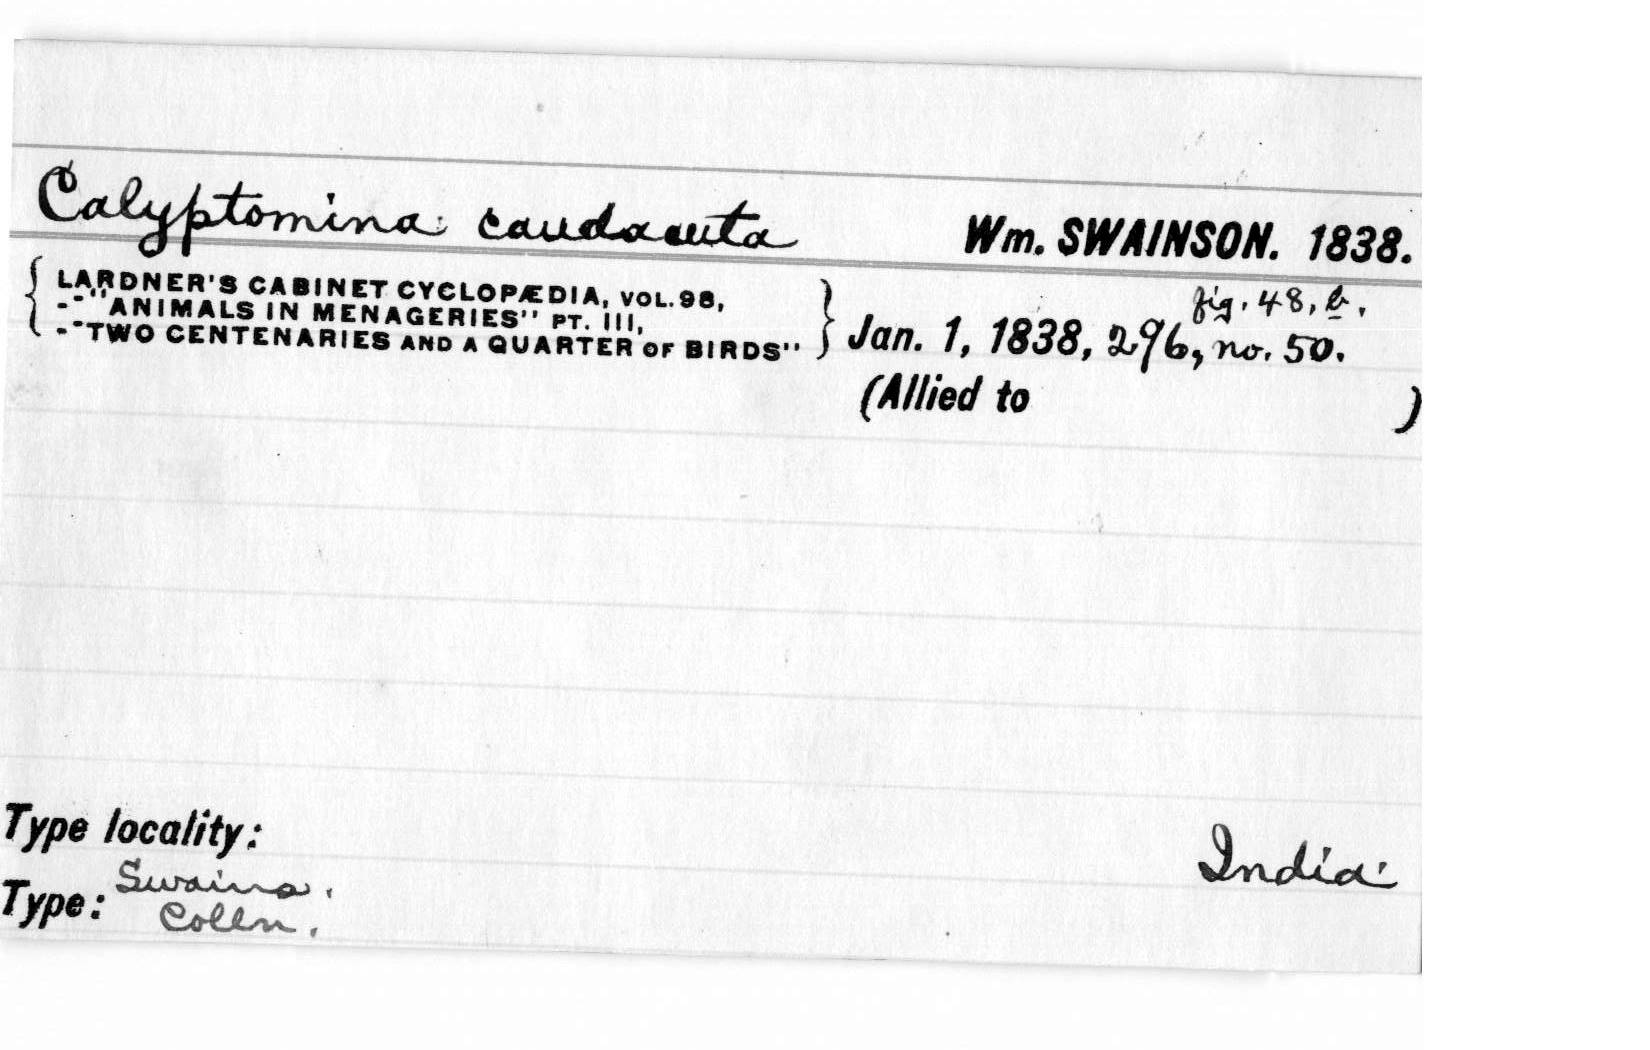 Calyptomina caudacuta Wm. SWAINSON. 1838.
LARDNER'S CABINET CYCLOPÆDIA, VOL. 98,
-"ANIMALS IN MENAGERIES" PT. III,
-"TWO CENTENARIES AND A QUARTER OF BIRDS"
fig. 48, b.
Jan. 1, 1838, 296, no. 50.
(Allied to )
Type locality: India
Type: Swains.
Colln.